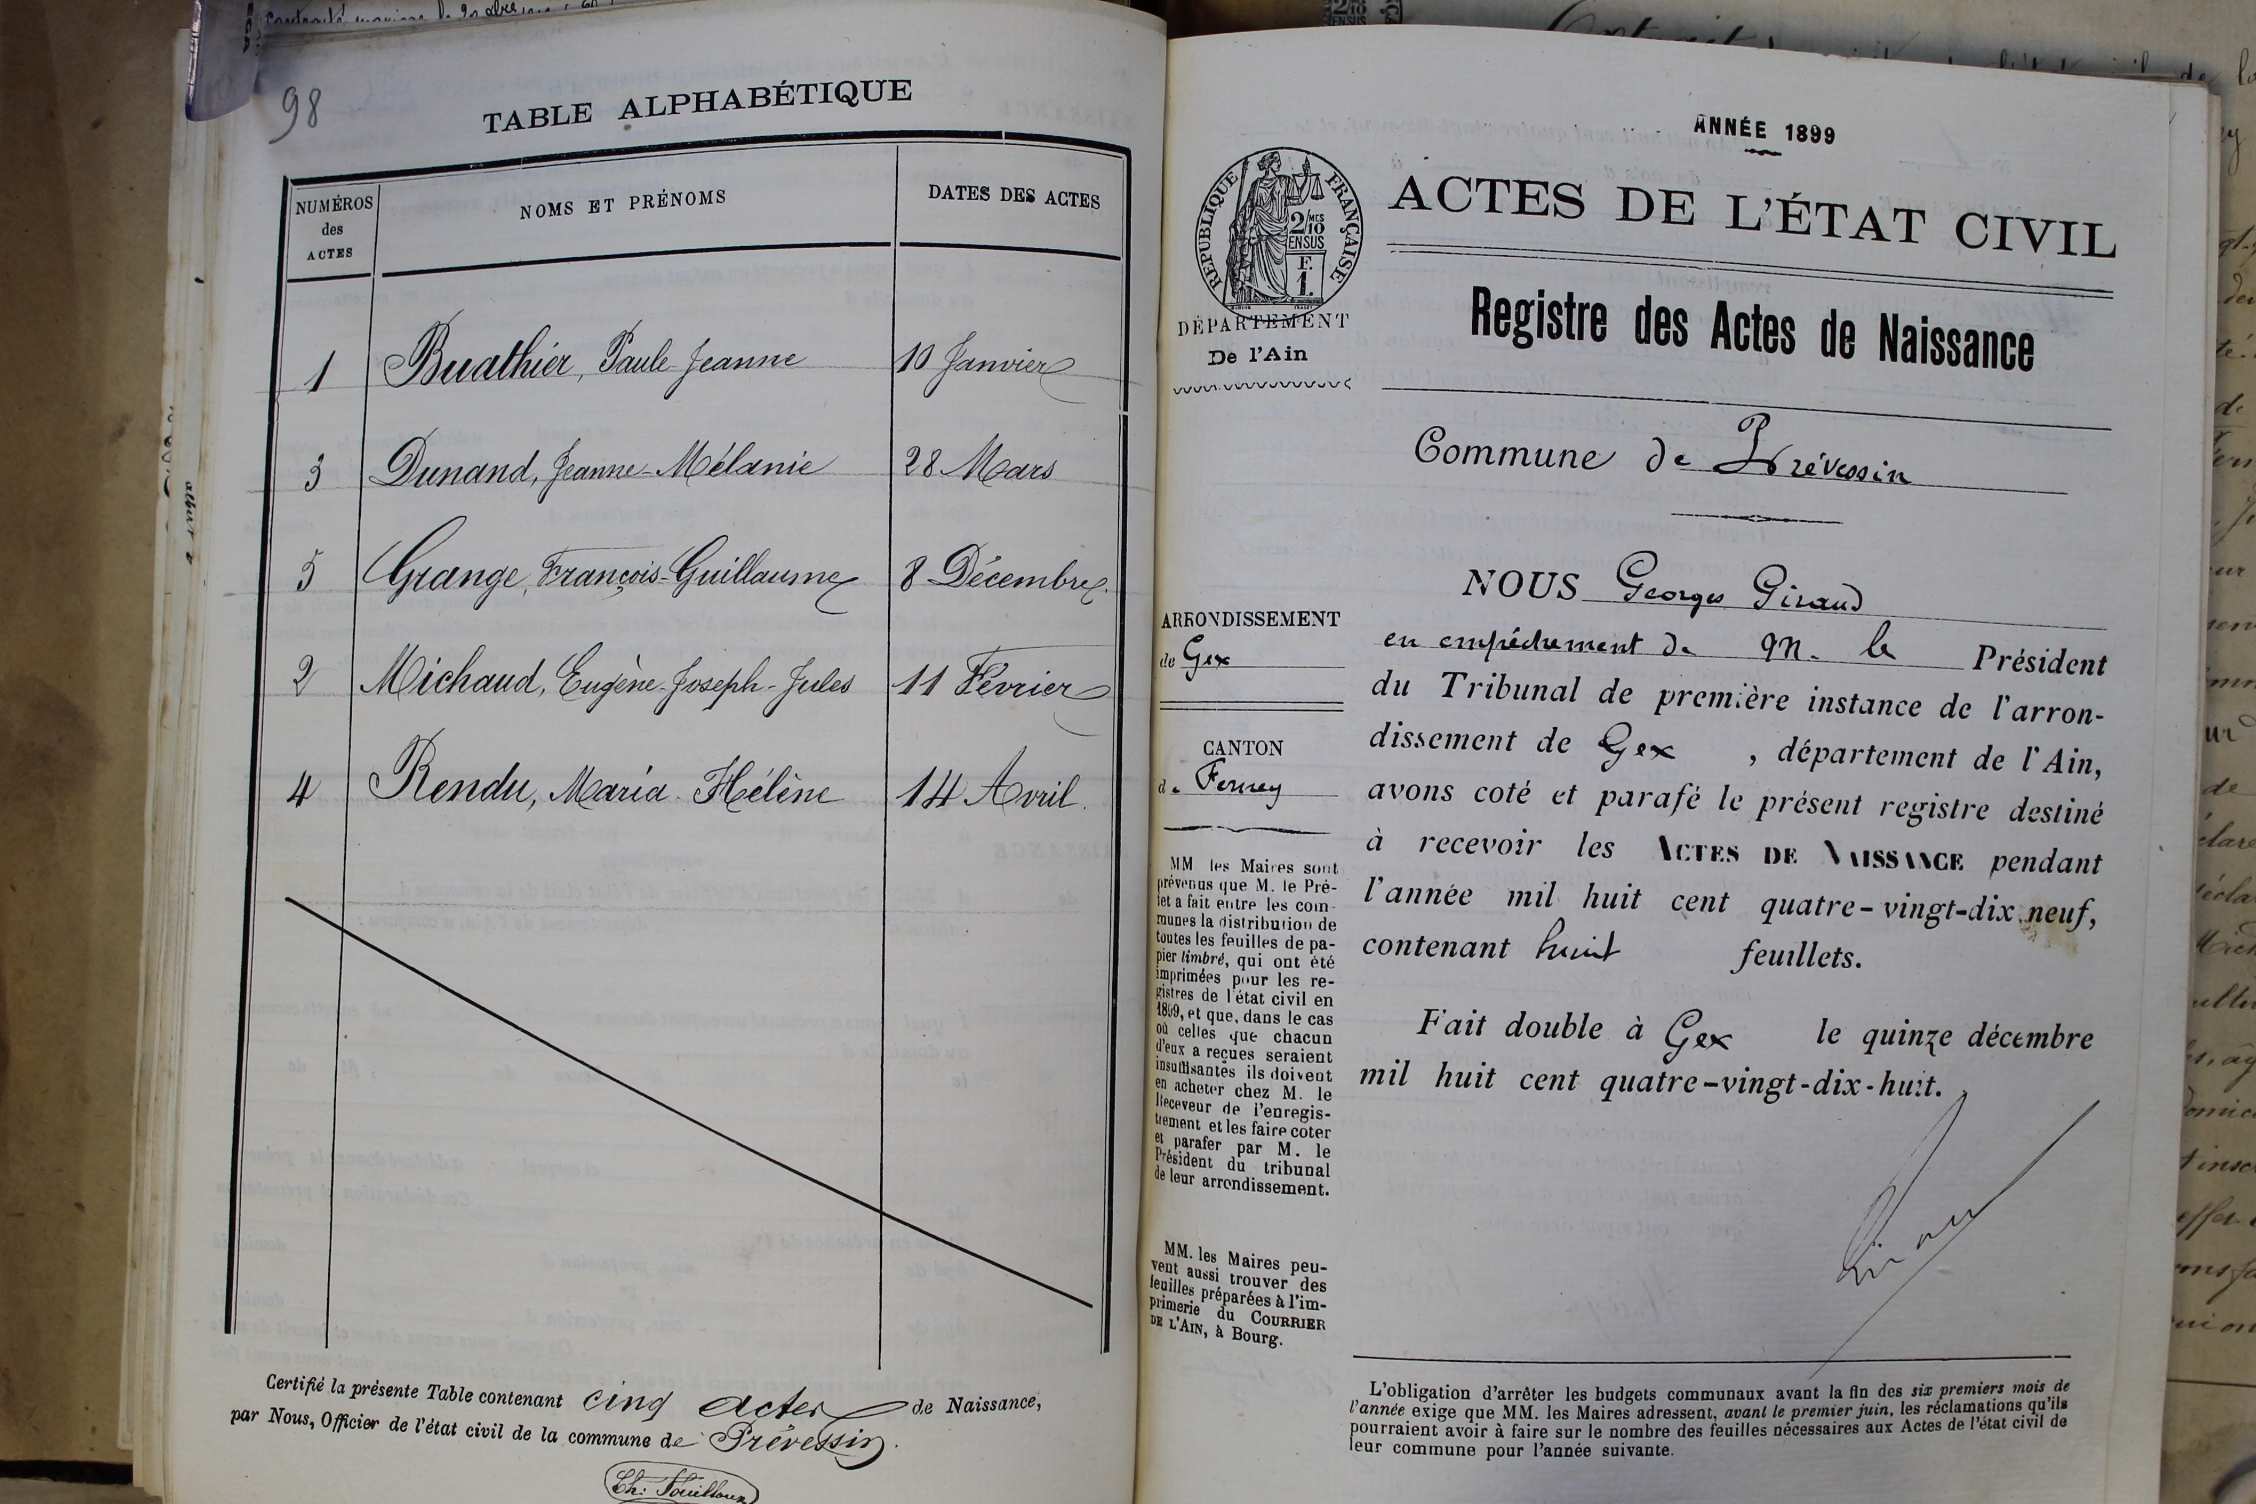 98
TABLE ALPHABÉTIQUE
NUMÉROS
des
ACTES
NOMS ET PRÉNOMS
DATES DES ACTES
1 Buathier, Paule-Jeanne 10 Janvier
3 Dunand, Jeanne-Mélanie 28 Mars
5 Grange, François-Guillaume 8 Décembre.
2 Michaud, Eugène-Joseph-Jules 11 Février
4 Rendu, Maria-Hélène 14 Avril.
Certifié la présente Table contenant cinq actes de Naissance,
par Nous, Officier de l'état civil de la commune de Prévessin.
ANNÉE 1899
RÉPUBLIQUE FRANÇAISE
2/10
MES
EN SUS
F.
1.
DÉPARTEMENT
De l'Ain
ACTES DE L'ÉTAT CIVIL
Registre des Actes de Naissance
Commune de Prévessin
ARRONDISSEMENT
de Gex
CANTON
de Ferney
MM les Maires sont
prévenus que M. le Pré-
fet a fait entre les com-
munes la distribution de
toutes les feuilles de pa-
pier timbré, qui ont été
imprimées pour les re-
gistres de l'état civil en
1899, et que, dans le cas
où celles que chacun
d'eux a reçues seraient
insuffisantes ils doivent
en acheter chez M. le
Receveur de l'enregis-
trement et les faire coter
et parafer par M. le
Président du tribunal
de leur arrondissement.
MM. les Maires peu-
vent aussi trouver des
feuilles préparées à l'im-
primerie du COURRIER
DE L'AIN, à Bourg.
NOUS Georges Giraud
en empêchement de M. le Président
du Tribunal de première instance de l'arron-
dissement de Gex , département de l'Ain,
avons coté et parafé le présent registre destiné
à recevoir les ACTES DE NAISSANCE pendant
l'année mil huit cent quatre-vingt-dix neuf,
contenant huit feuillets.
Fait double à Gex le quinze décembre
mil huit cent quatre-vingt-dix-huit.
L'obligation d'arrêter les budgets communaux avant la fin des six premiers mois de
l'année exige que MM. les Maires adressent, avant le premier juin, les réclamations qu'ils
pourraient avoir à faire sur le nombre des feuilles nécessaires aux Actes de l'état civil de
leur commune pour l'année suivante.